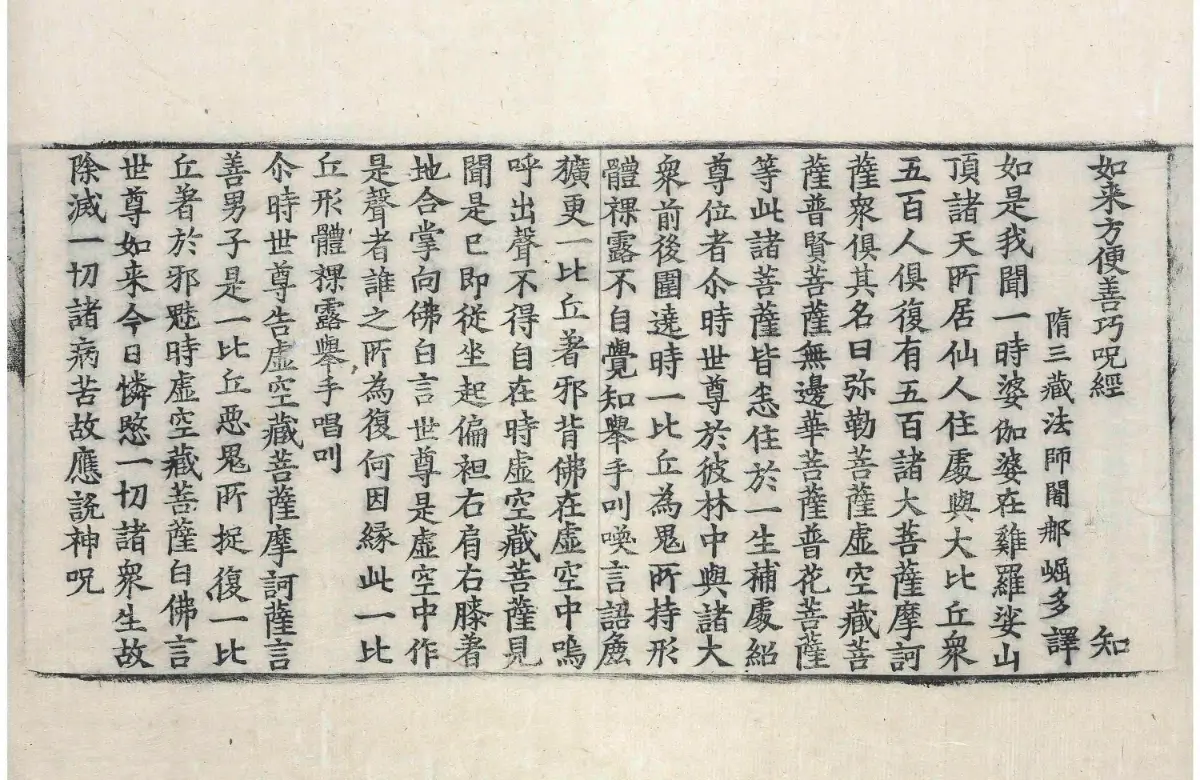 如来方便善巧呪經 知
隋三藏法師闍那崛多譯
如是我聞一時婆伽婆在雞羅娑山
頂諸天所居仙人住處與大比丘衆
五百人俱復有五百諸大菩薩摩訶
薩衆俱其名曰弥勒菩薩虚空藏菩
薩普賢菩薩無邊華菩薩普花菩薩
等此諸菩薩皆悉住於一生補處紹
尊位者尒時世尊於彼林中與諸大
衆前後圍遶時一比丘為鬼所持形
體裸露不自覺知舉手叫喚言語麁
獷更一比丘著邪背佛在虚空中嗚
呼出聲不得自在時虚空藏菩薩見
聞是已即從坐起偏袒右肩右膝著
地合掌向佛白言世尊是虚空中作
是聲者誰之所為復何因緣此一比
丘形體裸露舉手唱叫
尒時世尊告虚空藏菩薩摩訶薩言
善男子是一比丘惡鬼所捉復一比
丘著於邪魅時虚空藏菩薩白佛言
世尊如来今日憐愍一切諸衆生故
除滅一切諸病苦故應說神呪